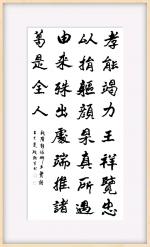 孝能竭力王祥覽忠
以捐軀顏杲真所遇
由來殊出處端推諸
葛是全人